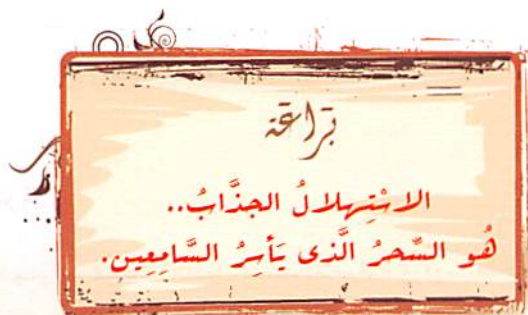 بَرَاعَة
الاسْتِهلالُ الجذَّابُ..
هُو السِّحرُ الَّذى يَأسِرُ السَّامِعِين.